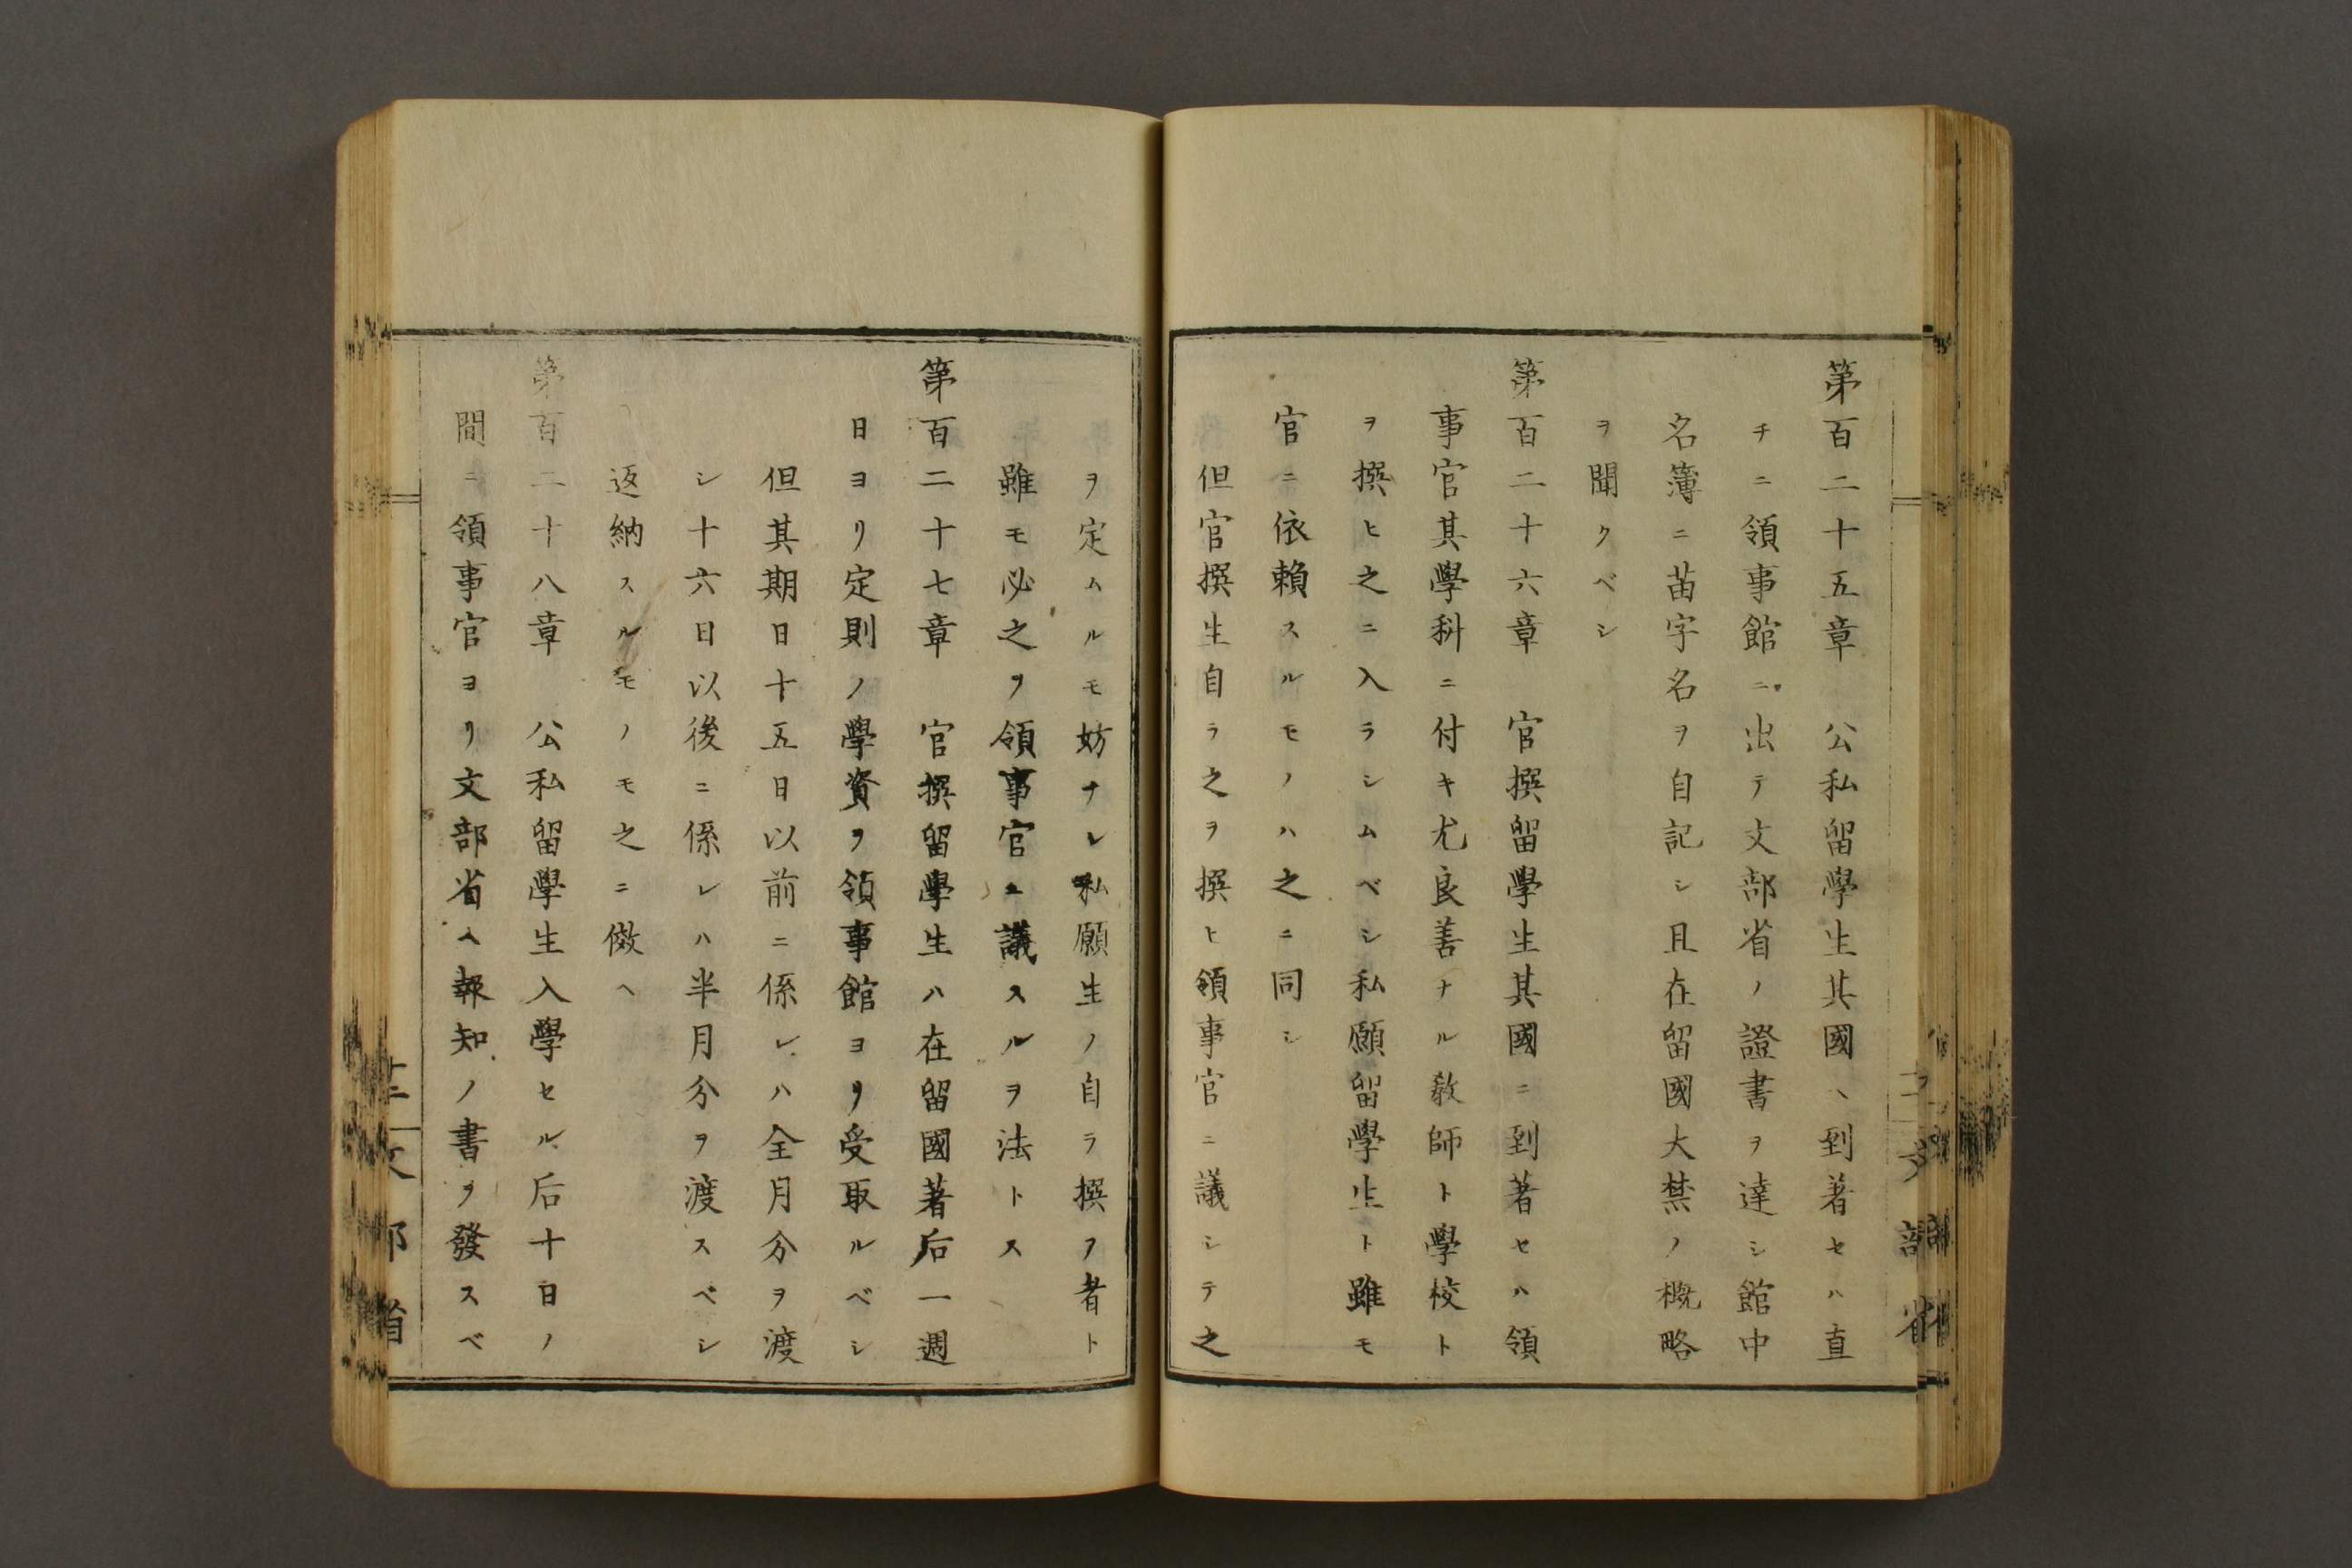 第百二十五章　公私留學生其國ヘ到著セハ直
チニ領事館ニ出テ文部省ノ證書ヲ達シ館中
名簿ニ苗字名ヲ自記シ且在留國大禁ノ概略
ヲ聞クベシ
第百二十六章　官撰留學生其國ニ到著セハ領
事官其學科ニ付キ尤良善ナル教師ト學校ト
ヲ撰ヒ之ニ入ラシムベシ私願留學生ト雖モ
官ニ依賴スルモノハ之ニ同シ
但官撰生自ラ之ヲ撰ヒ領事官ニ議シテ之
ヲ定ムルモ妨ナレ私願生ノ自ラ撰フ者ト
雖モ必之ヲ領事官ニ議スルヲ法トス
第百二十七章　官撰留學生ハ在留國著后一週
日ヨリ定則ノ學資ヲ領事館ヨリ受取ルベシ
但其期日十五日以前ニ係レハ全月分ヲ渡
シ十六日以後ニ係レハ半月分ヲ渡スベシ
返納スルモノモ之ニ倣ヘ
第百二十八章　公私留學生入學セル后十日ノ
間ニ領事官ヨリ文部省ヘ報知ノ書ヲ發スベ
文部省